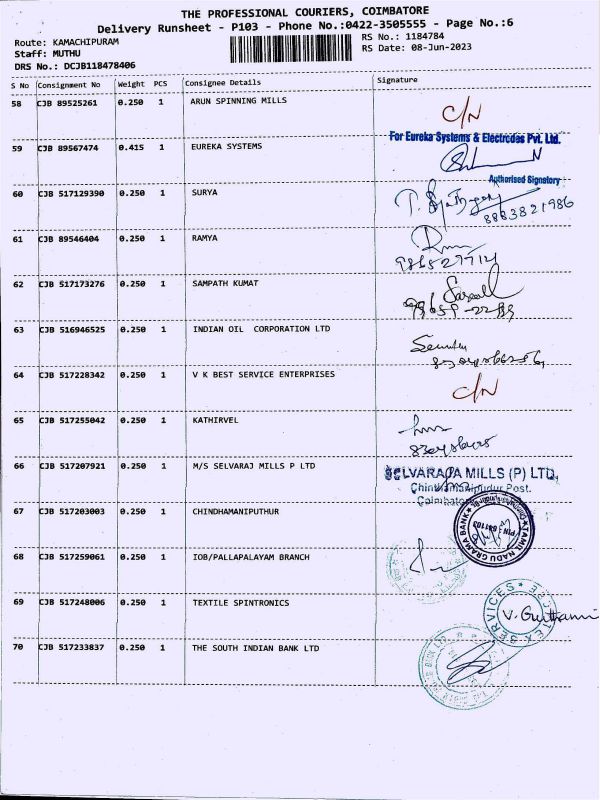 THE PROFESSIONAL COURIERS, COIMBATORE
Delivery Runsheet - P103 - Phone No.:0422-3505555 - Page No.:6
Route: KAMACHIPURAM RS No.: 1184784
Staff: MUTHU RS Date: 08-Jun-2023
DRS No.: DCJB118478406
S No Consignment No Weight PCS Consignee Details Signature
58 CJB 89525261 0.250 1 ARUN SPINNING MILLS C/N
For Eureka Systems & Electrodes Pvt. Ltd.
59 CJB 89567474 0.415 1 EUREKA SYSTEMS
Authorised Signatory
60 CJB 517129390 0.250 1 SURYA
8883821986
61 CJB 89546404 0.250 1 RAMYA
62 CJB 517173276 0.250 1 SAMPATH KUMAT
63 CJB 516946525 0.250 1 INDIAN OIL CORPORATION LTD
64 CJB 517228342 0.250 1 V K BEST SERVICE ENTERPRISES C/N
65 CJB 517255042 0.250 1 KATHIRVEL
66 CJB 517207921 0.250 1 M/S SELVARAJ MILLS P LTD SELVARAJA MILLS (P) LTD,
Chinthamanipudur Post.
67 CJB 517203003 0.250 1 CHINDHAMANIPUTHUR
TAMIL NADU GRAMA BANK
68 CJB 517259061 0.250 1 IOB/PALLAPALAYAM BRANCH
69 CJB 517248006 0.250 1 TEXTILE SPINTRONICS
SERVICES
70 CJB 517233837 0.250 1 THE SOUTH INDIAN BANK LTD